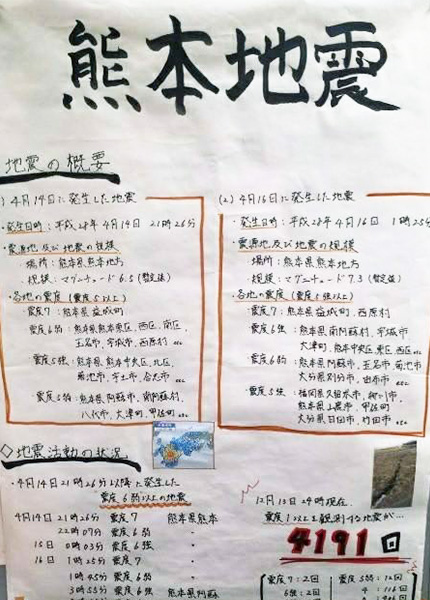 熊本地震
地震の概要
(1) 4月14日に発生した地震
・発生日時：平成28年4月14日 21時26分
・震源地及び地震の規模
場所：熊本県熊本地方
規模：マグニチュード6.5(暫定値)
・各地の震度(震度5以上)
震度7：熊本県益城町
震度6弱：熊本県熊本東区、西区、南区、
玉名市、宇城市、西原村 etc
震度5強：熊本中央区、北区、
菊池市、宇土市、合志市 etc
震度5弱：熊本県阿蘇市、南阿蘇村、
八代市、大津町、甲佐町 etc
(2) 4月16日に発生した地震
・発生日時：平成28年4月16日 1時25分
・震源地及び地震の規模
場所：熊本県熊本地方
規模：マグニチュード7.3(暫定値)
・各地の震度(震度5強以上)
震度7：熊本県益城町、西原村
震度6強：熊本県南阿蘇村、宇城市
大津町、熊本中央区、東区、西区 etc
震度6弱：熊本県阿蘇市、玉名市、菊池市
大分県別府市、由布市 etc
震度5強：福岡県久留米市、柳川市、
熊本県山鹿市、甲佐町
大分県日田市、竹田市 etc
◇地震活動の状況
・4月14日21時26分以降に発生した
震度6弱以上の地震
4月14日 21時26分 震度7 熊本県熊本
22時07分 震度6弱 〃
15日 0時03分 震度6強 〃
16日 1時25分 震度7 〃
1時45分 震度6弱 〃
3時55分 震度6強 熊本県阿蘇
12月13日24時現在、
震度1以上を観測する地震が…
4191回
震度7：2回
6強：2回
震度5弱：12回
4：116回